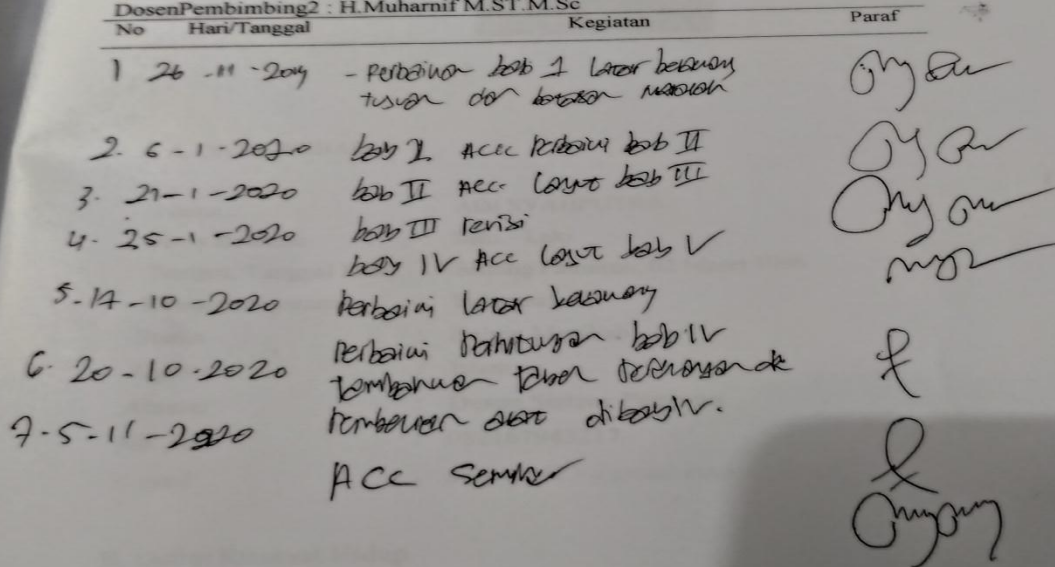 DosenPembimbing2 : H.Muharnif M.ST.M.Sc
No Hari/Tanggal Kegiatan Paraf
1 26 -11 -2019 - Perbaikan bab 1 latar belakang
tujuan dan batasan masalah
2. 6 - 1 - 2020 bab I Acc Perbaiki bab II
3. 21 - 1 - 2020 bab II Acc Lanjut bab III
4. 25 - 1 - 2020 bab III revisi
bab IV Acc Lanjut bab V
5. 14 - 10 - 2020 Perbaiki latar belakang
Perbaiki Perhitungan bab IV
6. 20 - 10 - 2020 tambahkan tabel
7. 5 - 11 - 2020 di bab IV.
Acc Seminar